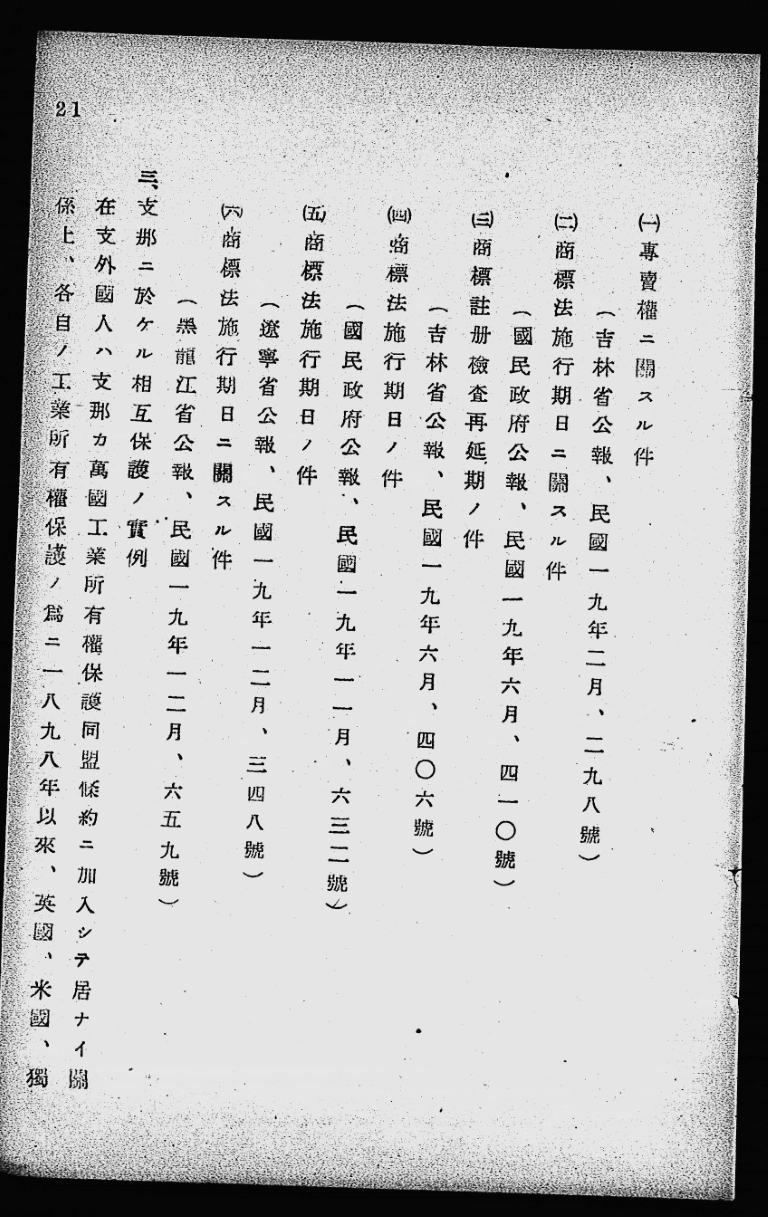 21
㈠專賣權ニ關スル件
（吉林省公報、民國一九年二月、二九八號）
㈡商標法施行期日ニ關スル件
（國民政府公報、民國一九年六月、四一〇號）
㈢商標註册檢査再延期ノ件
（吉林省公報、民國一九年六月、四〇六號）
㈣商標法施行期日ノ件
（國民政府公報、民國一九年一一月、六三二號）
㈤商標法施行期日ノ件
（遼寧省公報、民國一九年一二月、三四八號）
㈥商標法施行期日ニ關スル件
（黑龍江省公報、民國一九年一二月、六五九號）
三、支那ニ於ケル相互保護ノ實例
在支外國人ハ支那カ萬國工業所有權保護同盟條約ニ加入シテ居ナイ關
係上、各自ノ工業所有權保護ノ爲ニ一八九八年以來、英國、米國、獨